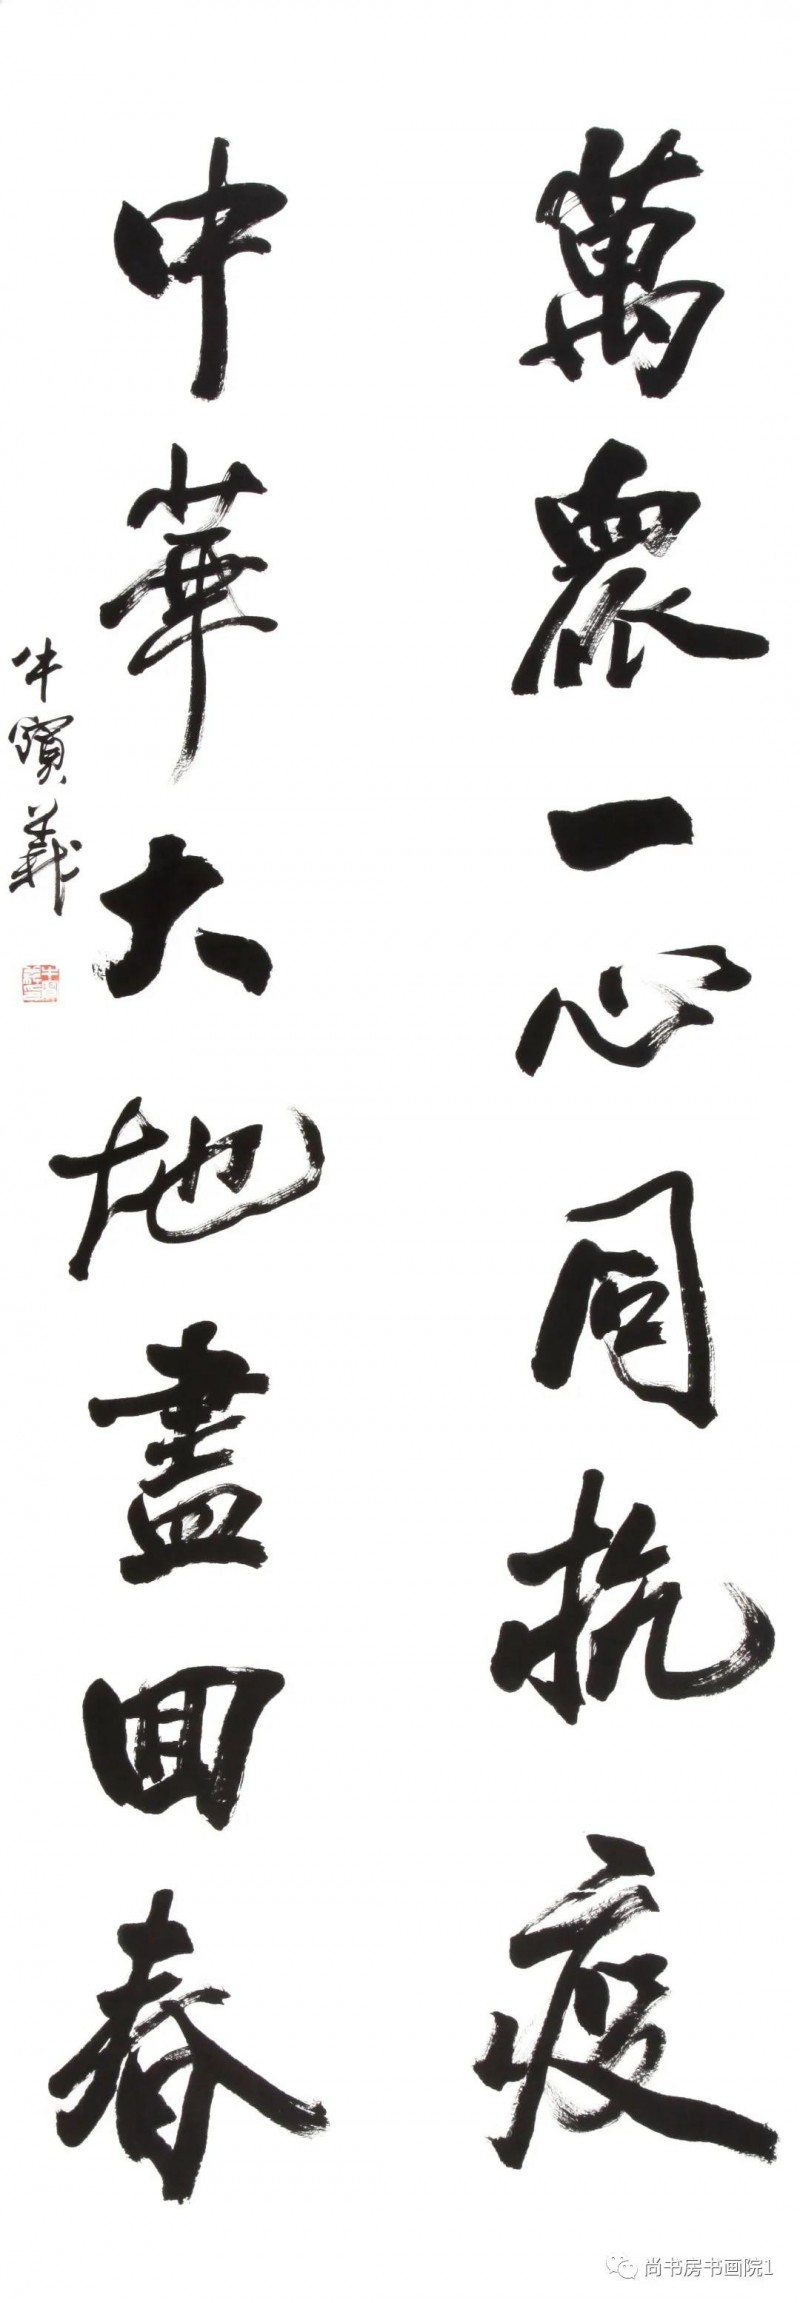 萬眾一心同抗疫
中華大地盡回春
牛寶義
尚书房书画院1